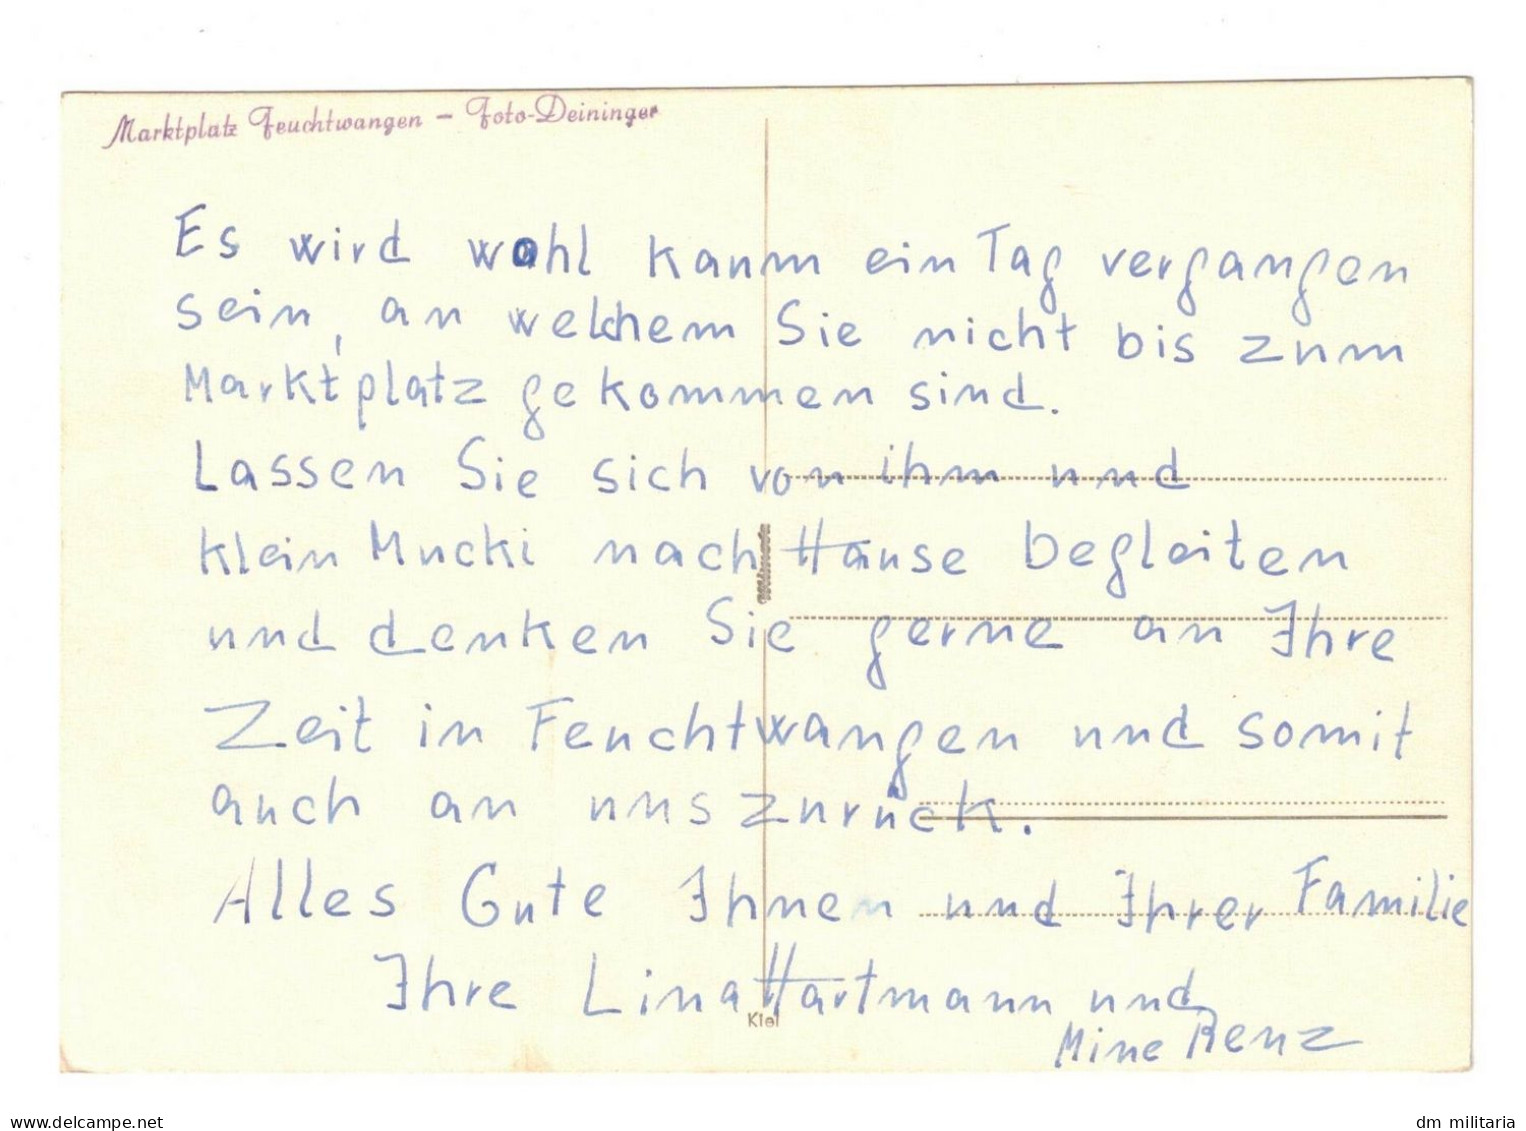 Marktplatz Feuchtwangen – Foto-Deininger
Es wird wohl kaum ein Tag vergangen
sein, an welchem Sie nicht bis zum
Marktplatz gekommen sind.
Lassen Sie sich von ihm und
klein Mucki nach Hause begleiten
und denken Sie gerne an Ihre
Zeit in Feuchtwangen und somit
auch an uns zurück.
Alles Gute Ihnen und Ihrer Familie
Ihre Lina Hartmann und
Mine Renz
Kiel
delcampe.net
dm militaria